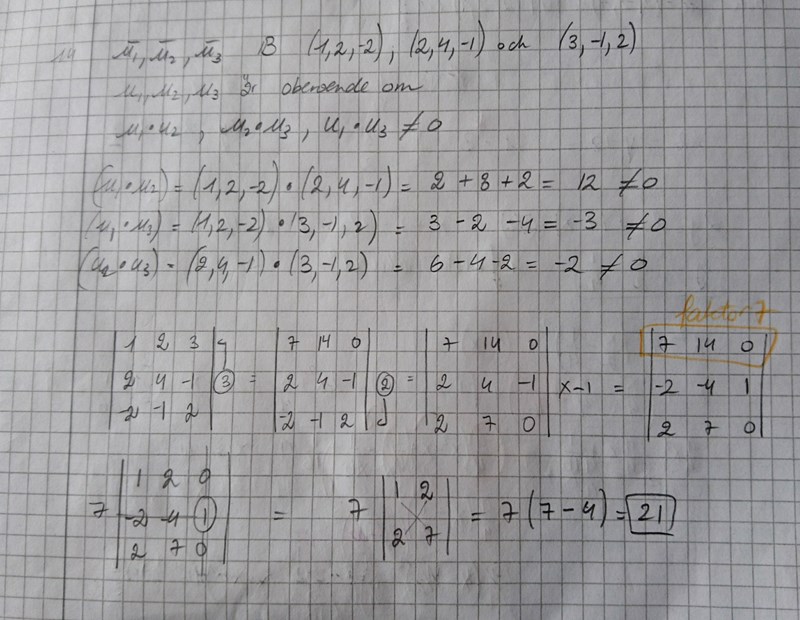 14 ū₁, ū₂, ū₃ är (1,2,-2), (2,4,-1) och (3,-1,2)
u₁, u₂, u₃ är oberoende om
u₁•u₂ , u₂•u₃ , u₁•u₃ ≠0
(u₁•u₂) = (1,2,-2)•(2,4,-1) = 2 +8 +2 = 12 ≠0
(u₁•u₃) = (1,2,-2)•(3,-1,2) = 3 -2 -4 = -3 ≠0
(u₂•u₃) = (2,4,-1)•(3,-1,2) = 6 -4 -2 = -2 ≠0
faktor 7
|1 2 3| |7 14 0| |7 14 0| |7 14 0|
|2 4 -1| ③ = |2 4 -1| ② = |2 4 -1| x-1 = |-2 -4 1|
|-2 -1 2| |-2 -1 2| |2 7 0| |2 7 0|
|1 2 0| |1 2|
7 |-2 -4 1| = 7 = 7(7-4) = 21
|2 7 0| |2 7|